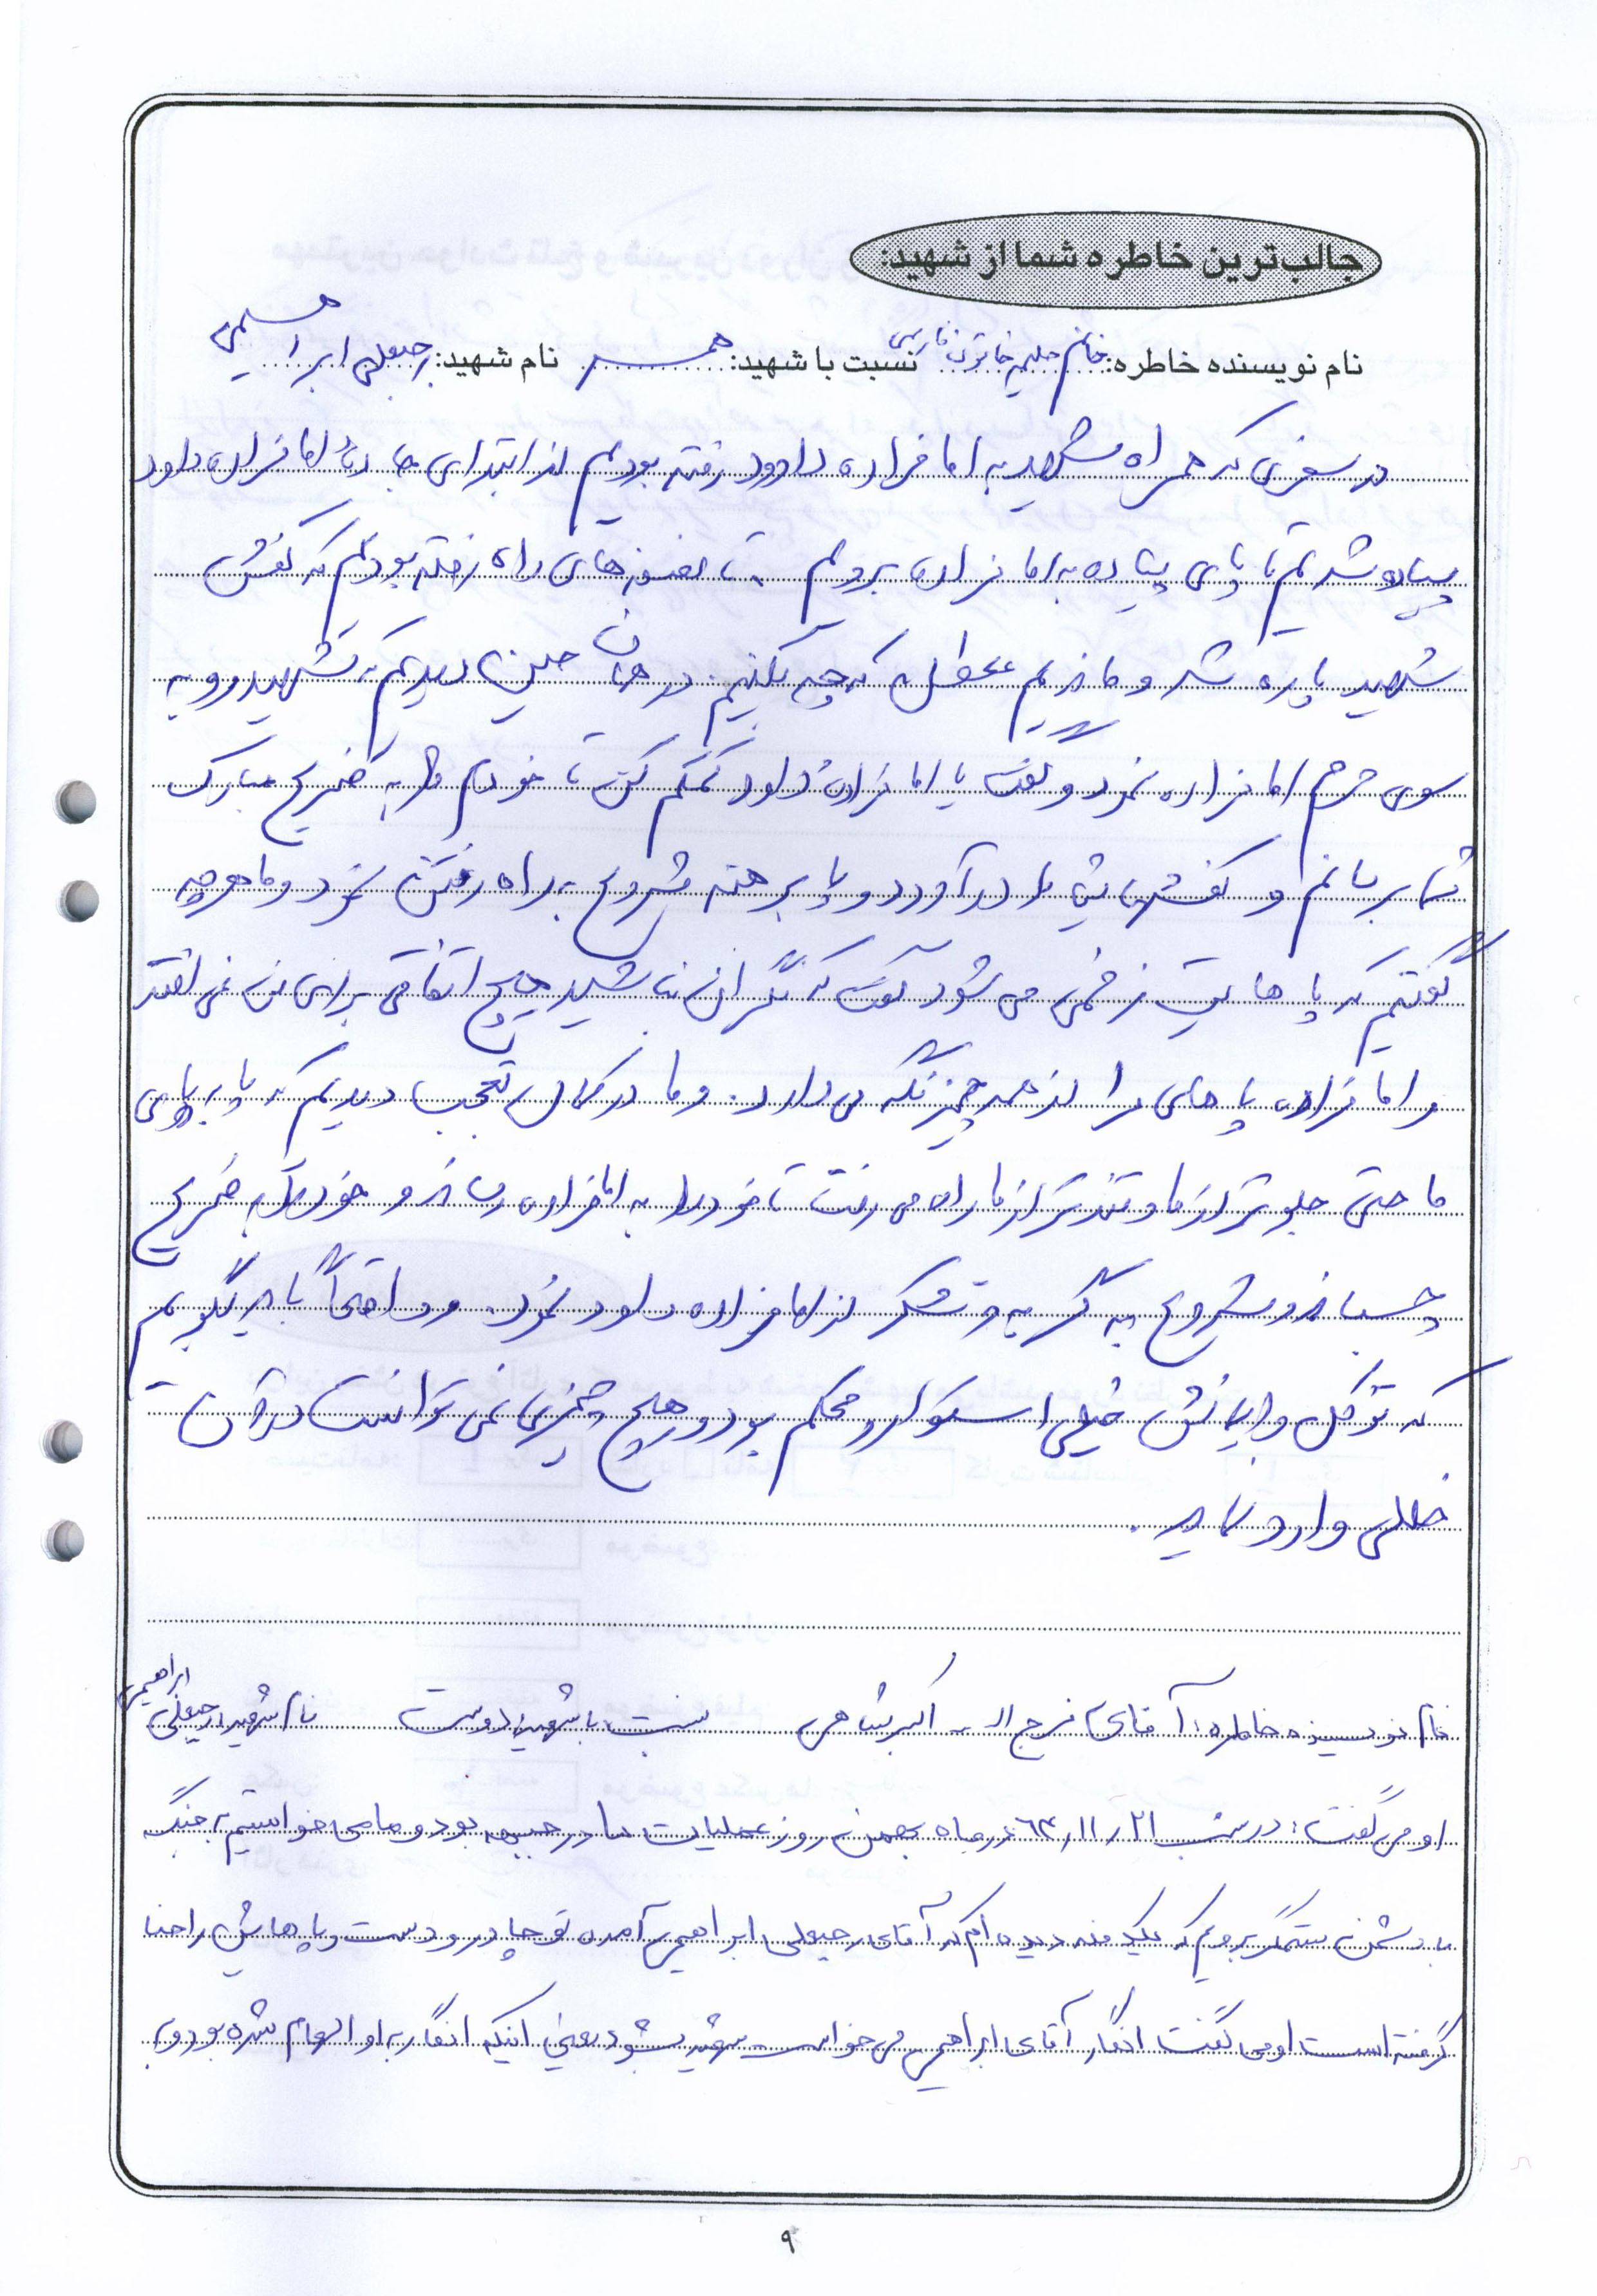 جالب‌ترین خاطره شما از شهید:
نام نویسنده خاطره: خانم حلیمه خاتون فارسی نسبت با شهید: همسر نام شهید: رجبعلی ابراهیمی
در سفری که همراه شهید به امامزاده داوود رفته بودیم از ابتدای جاده امامزاده داود
پیاده شدیم تا پای پیاده به امامزاده برویم. تا نصفه‌های راه رفته بودیم که کفش
شهید پاره شد و ماندیم معطل که چه بکنیم. در همان حین دیدیم که شهید رو به
سوی حرم امامزاده نمود و گفت یا امامزاده داود کمکم کن تا خودم را به ضریح مبارک
شما برسانم و کفشهایش را درآورد و پا برهنه شروع به راه رفتن نمود و ما هرچه
گفتیم که پاهایت زخمی می شود گفت که نگران نباشید هیچ اتفاقی برای من نمی افتد
و امامزاده پاهای مرا از همه چیز نگه می دارد. و ما در کمال تعجب دیدیم که پا به پای
ما حتی جلوتر از ما و تندتر از ما راه می رفت تا خود را به امامزاده رساند و خود را به ضریح
چسباند و شروع به گریه و تشکر از امامزاده داود نمود. و واقعاً باید بگویم
که توکل و ایمانش خیلی استوار و محکم بود و هیچ چیزی نمی توانست در آن
خللی وارد نماید.
نام نویسنده خاطره: آقای فرج اله اکبرشاهی نسبت با شهید: دوست نام شهید: رجبعلی ابراهیمی
او می گفت: در شب ۲۱/۱۱/۶۴ در ماه بهمن روز عملیات ما در جبهه بود و ما می خواستیم به جنگ
با دشمن ستمگر برویم که یکدفعه دیده ام که آقای رجبعلی ابراهیمی آمده تو چادر و دست و پاهایش را حنا
گرفته است او می گفت انگار آقای ابراهیمی می خواست شهید بشود یعنی اینکه انگار به او الهام شده بود و
۹